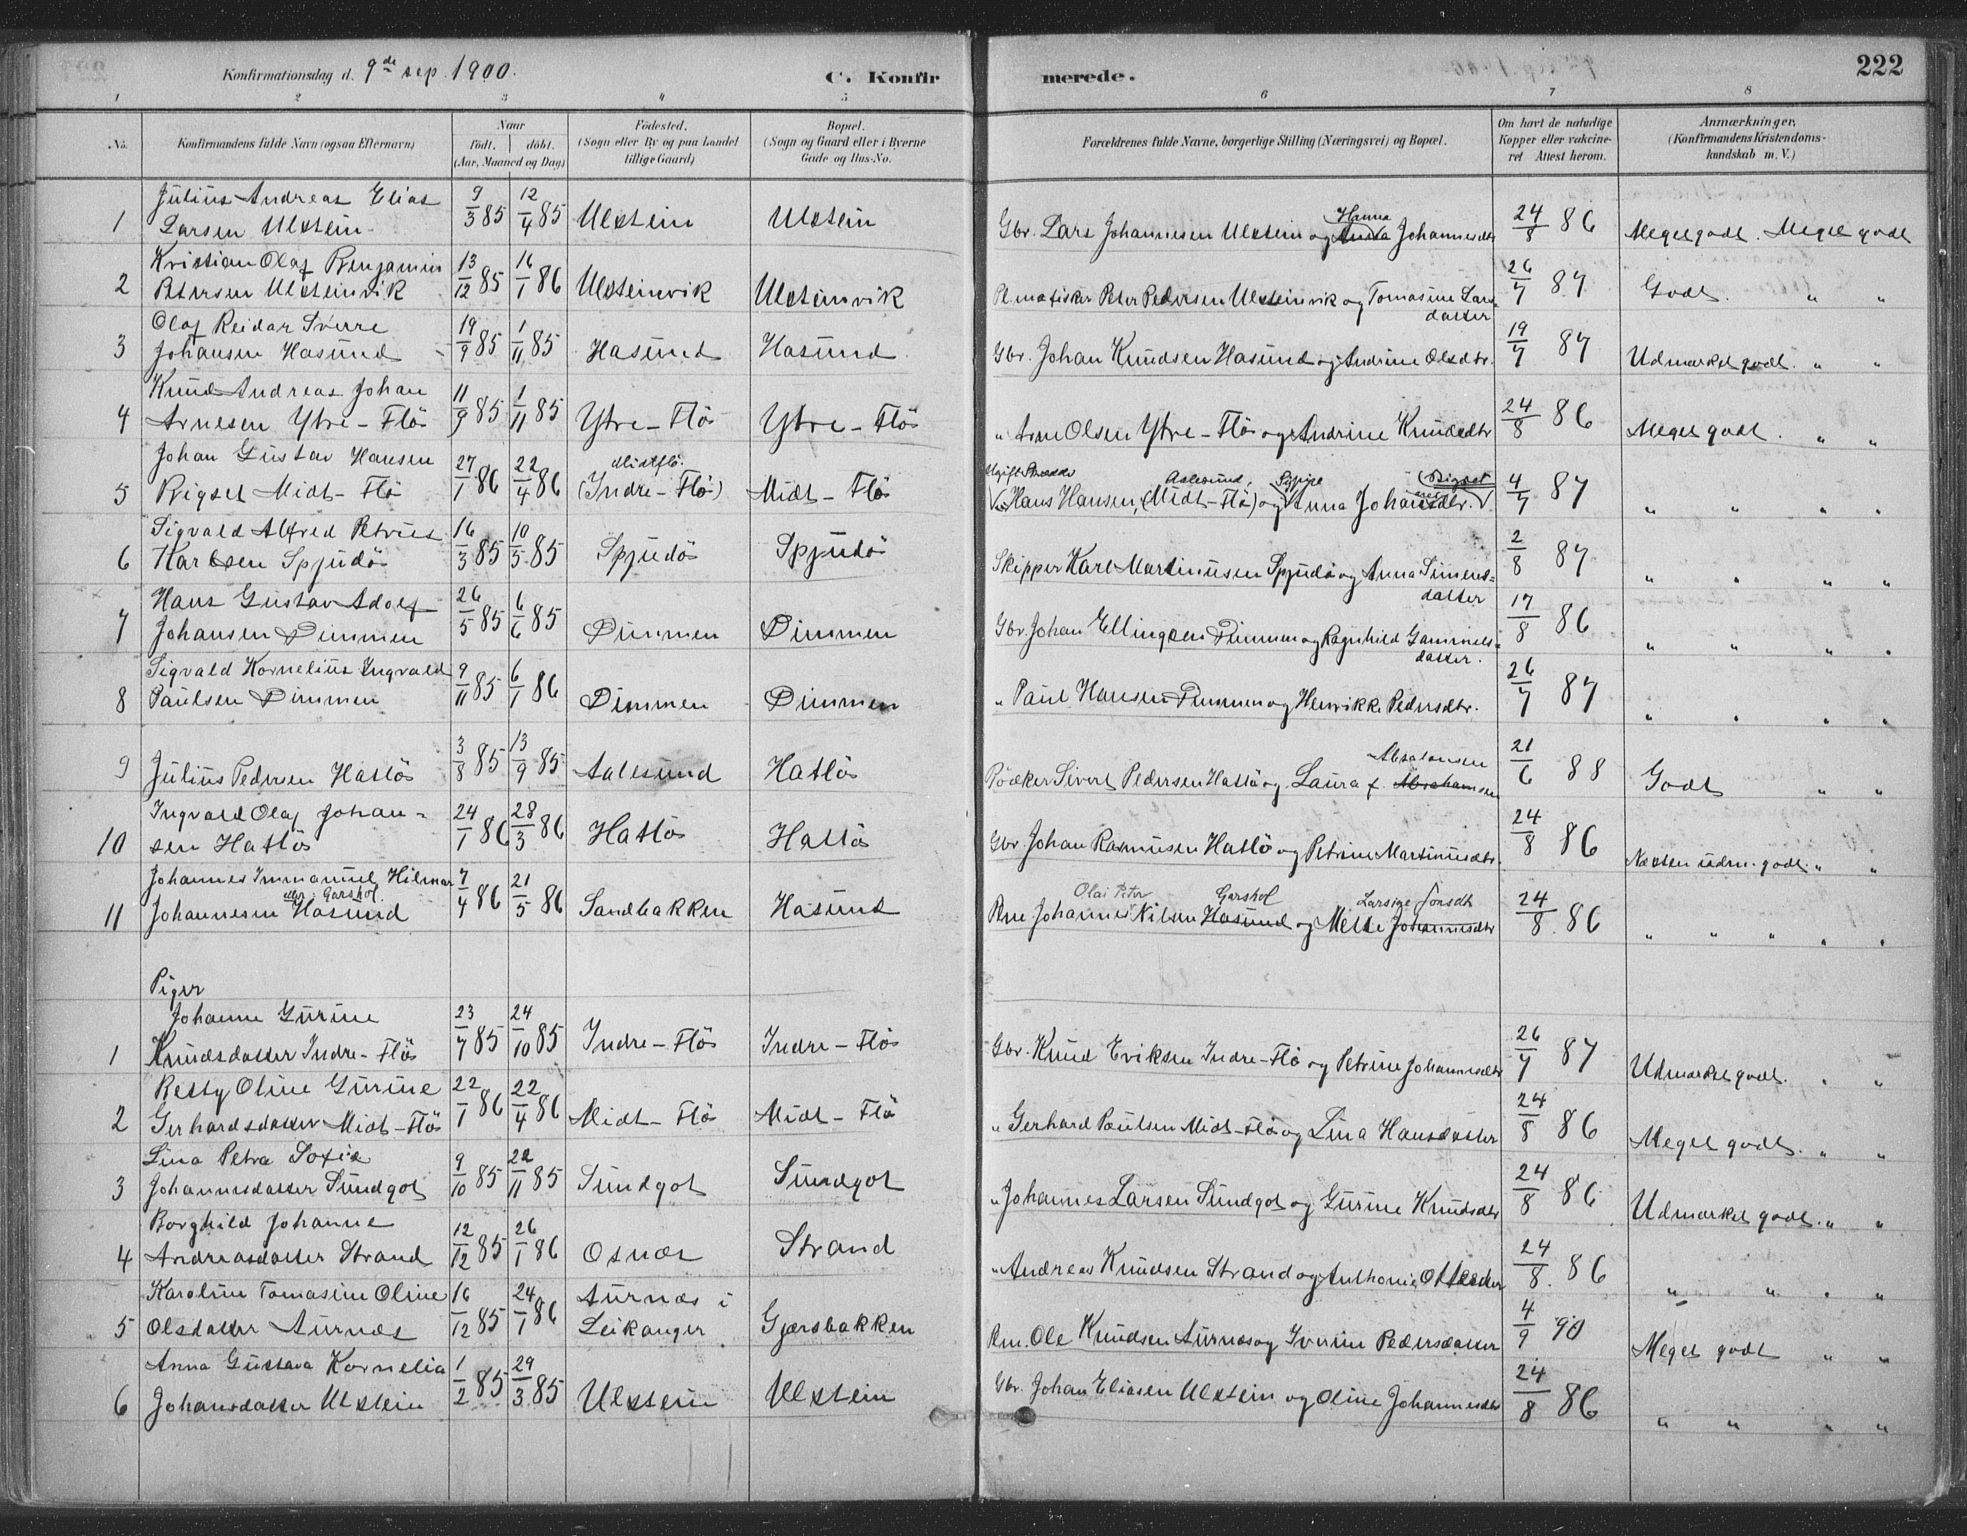 Konfirmationsdag d. 9de sep. 1900.
C. Konfirmerede.
222
1 2 3 4 5 6 7 8
No.
Konfirmandens fulde Navn (ogsaa Efternavn)
Naar
født. døbt.
(Aar, Maaned og Dag)
Fødested.
(Sogn eller By og paa Landet
tillige Gaard)
Bopæl.
(Sogn og Gaard eller i Byerne
Gade og Hus-No.
Forældrenes fulde Navne, borgerlige Stilling (Næringsvei) og Bopæl.
Om havt de naturlige
Kopper eller vakcine-
ret Attest herom.
Anmærkninger.
(Konfirmandens Kristendoms-
kundskab m. V.)
1 Julius Andreas Elias
Larsen Ulstein 9/3 85 12/4 85 Ulstein Ulstein Gbr. Lars Johannesen Ulstein og Anna Hanna Johannesdtr 24/8 86 Meget godt. Meget godt
2 Kristian Olaf Benjamin
Petersen Ulsteinvik 13/12 85 16/1 86 Ulsteinvik Ulsteinvik Pl.m. fisker Peter Pedersen Ulsteinvik og Tomasine Lars-
datter 26/7 87 Godt. " "
3 Olaf Reidar Sverre
Johansen Hasund 19/9 85 1/11 85 Hasund Hasund Gbr. Johan Knudsen Hasund og Andrine Olsdtr. 19/7 87 Udmærket godt. " "
4 Knud Andreas Johan
Arnesen Ytre-Flö 11/9 85 1/11 85 Ytre-Flö Ytre-Flö " Arne Olsen Ytre-Flö og Andrine Knudsdtr 24/8 86 Meget godt. " "
5 Johan Gustav Hansen
Rigset Midt-Flö 27/1 86 22/4 86 Midtflö.
(Indre-Flö) Midt-Flö Ugift Hans Hansen, Aalesund, (Midt-Flö) og Anna Johansdtr. 4/7 87 " " " "
6 Sigvald Alfred Petrus
Karlsen Spjudö 16/3 85 10/5 85 Spjudö Spjudö Skipper Karl Martinussen Spjudö og Anna Simens-
datter 2/8 87 " " " "
7 Hans Gustav Adolf
Johansen Dimmen 26/5 85 6/6 85 Dimmen Dimmen Gbr. Johan Ellingsen Dimmen og Ragnhild Gammels-
datter. 17/8 86 " " " "
8 Sigvald Kornelius Ingvald
Paulsen Dimmen 9/11 85 6/1 86 Dimmen Dimmen " Paul Hansen Dimmen og Henrikke Pedersdtr. 26/7 87 " " " "
9 Julius Pedersen Hatlö 3/8 85 13/9 85 Aalesund Hatlö Bödker Sivert Pedersen Hatlö og Laura f. Abrahamsen Absalonsen 21/6 88 Godt " "
10 Ingvald Olaf Johan-
sen Hatlö 24/1 86 28/3 86 Hatlö Hatlö Gbr. Johan Rasmusen Hatlö og Petrine Martinusdtr. 24/8 86 Næsten udm. godt " "
11 Johannes Immanuel Hilmar
Johannesen Hasund eller Garshol. 7/4 86 21/5 86 Sandbakken Hasund Johannes Olai Peter Nilsen Hasund Garshol og Mette Johannesdtr Larsine Jonsdt 24/8 86 " " " " "
Piger
1 Johanne Gurine
Knudsdatter Indre-Flö 23/7 85 24/10 85 Indre-Flö Indre-Flö Gbr. Knud Eriksen Indre-Flö og Petrine Johannesdtr 26/7 87 Udmærket godt. " "
2 Betsy Oline Gurine
Gerhardsdatter Midt-Flö 22/1 86 22/4 86 Midt-Flö Midt-Flö " Gerhard Paulsen Midt-Flö og Lina Hansdatter 24/8 86 Meget godt. " "
3 Lina Petra Sofie
Johannesdatter Sundgot 9/10 85 22/11 85 Sundgot Sundgot " Johannes Larsen Sundgot og Gurine Knudsdtr 24/8 86 Udmærket godt. " "
4 Borghild Johanne
Andreasdatter Strand 12/12 85 26/1 86 Osnæs Strand " Andreas Knudsen Strand og Anthonie Ottesdtr 24/8 86 " " " "
5 Karoline Tomasine Oline
Olsdatter Aurnæs 16/12 85 24/1 86 Aurnæs i
Leikanger Gjersbakken Ole Knudsen Aurnæs og Iverine Pedersdatter 4/9 90 Meget godt " "
6 Anna Gustava Kornelia
Johansdatter Ulstein 1/2 85 29/3 85 Ulstein Ulstein Gbr. Johan Eliasen Ulstein og Oline Johannesdtr 24/8 86 " " " "